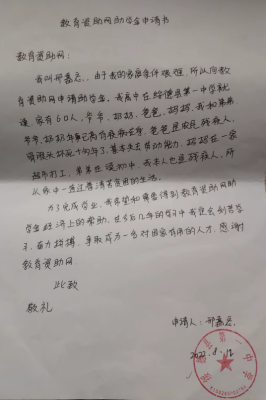 教育资助网助学金申请书
教育资助网：
我叫邢嘉忌，由于我的家庭条件很难，所以向教
育资助网申请助学金。我高中在绥德县第一中学就
读，家有6口人，爷爷、奶奶、爸爸、妈妈、我和弟弟
爷爷、奶奶年事已高有疾病在身，爸爸是农民残疾人，
股骨头坏死十几年了，基本失去劳动能力，妈妈在一家
超市打工，弟弟在读初中，我本人也是残疾人，所
以家中一直过着清苦贫困的生活。
为了完成学业，我希望和需要得到教育资助网助
学金经济上的帮助，在今后几年的学习中我定会刻苦学
习，奋力拼搏，争取成为一名对国家有用的人才，感谢
教育资助网。
此致
敬礼
申请人：邢嘉忌
2022.8.12
绥德县第一中学